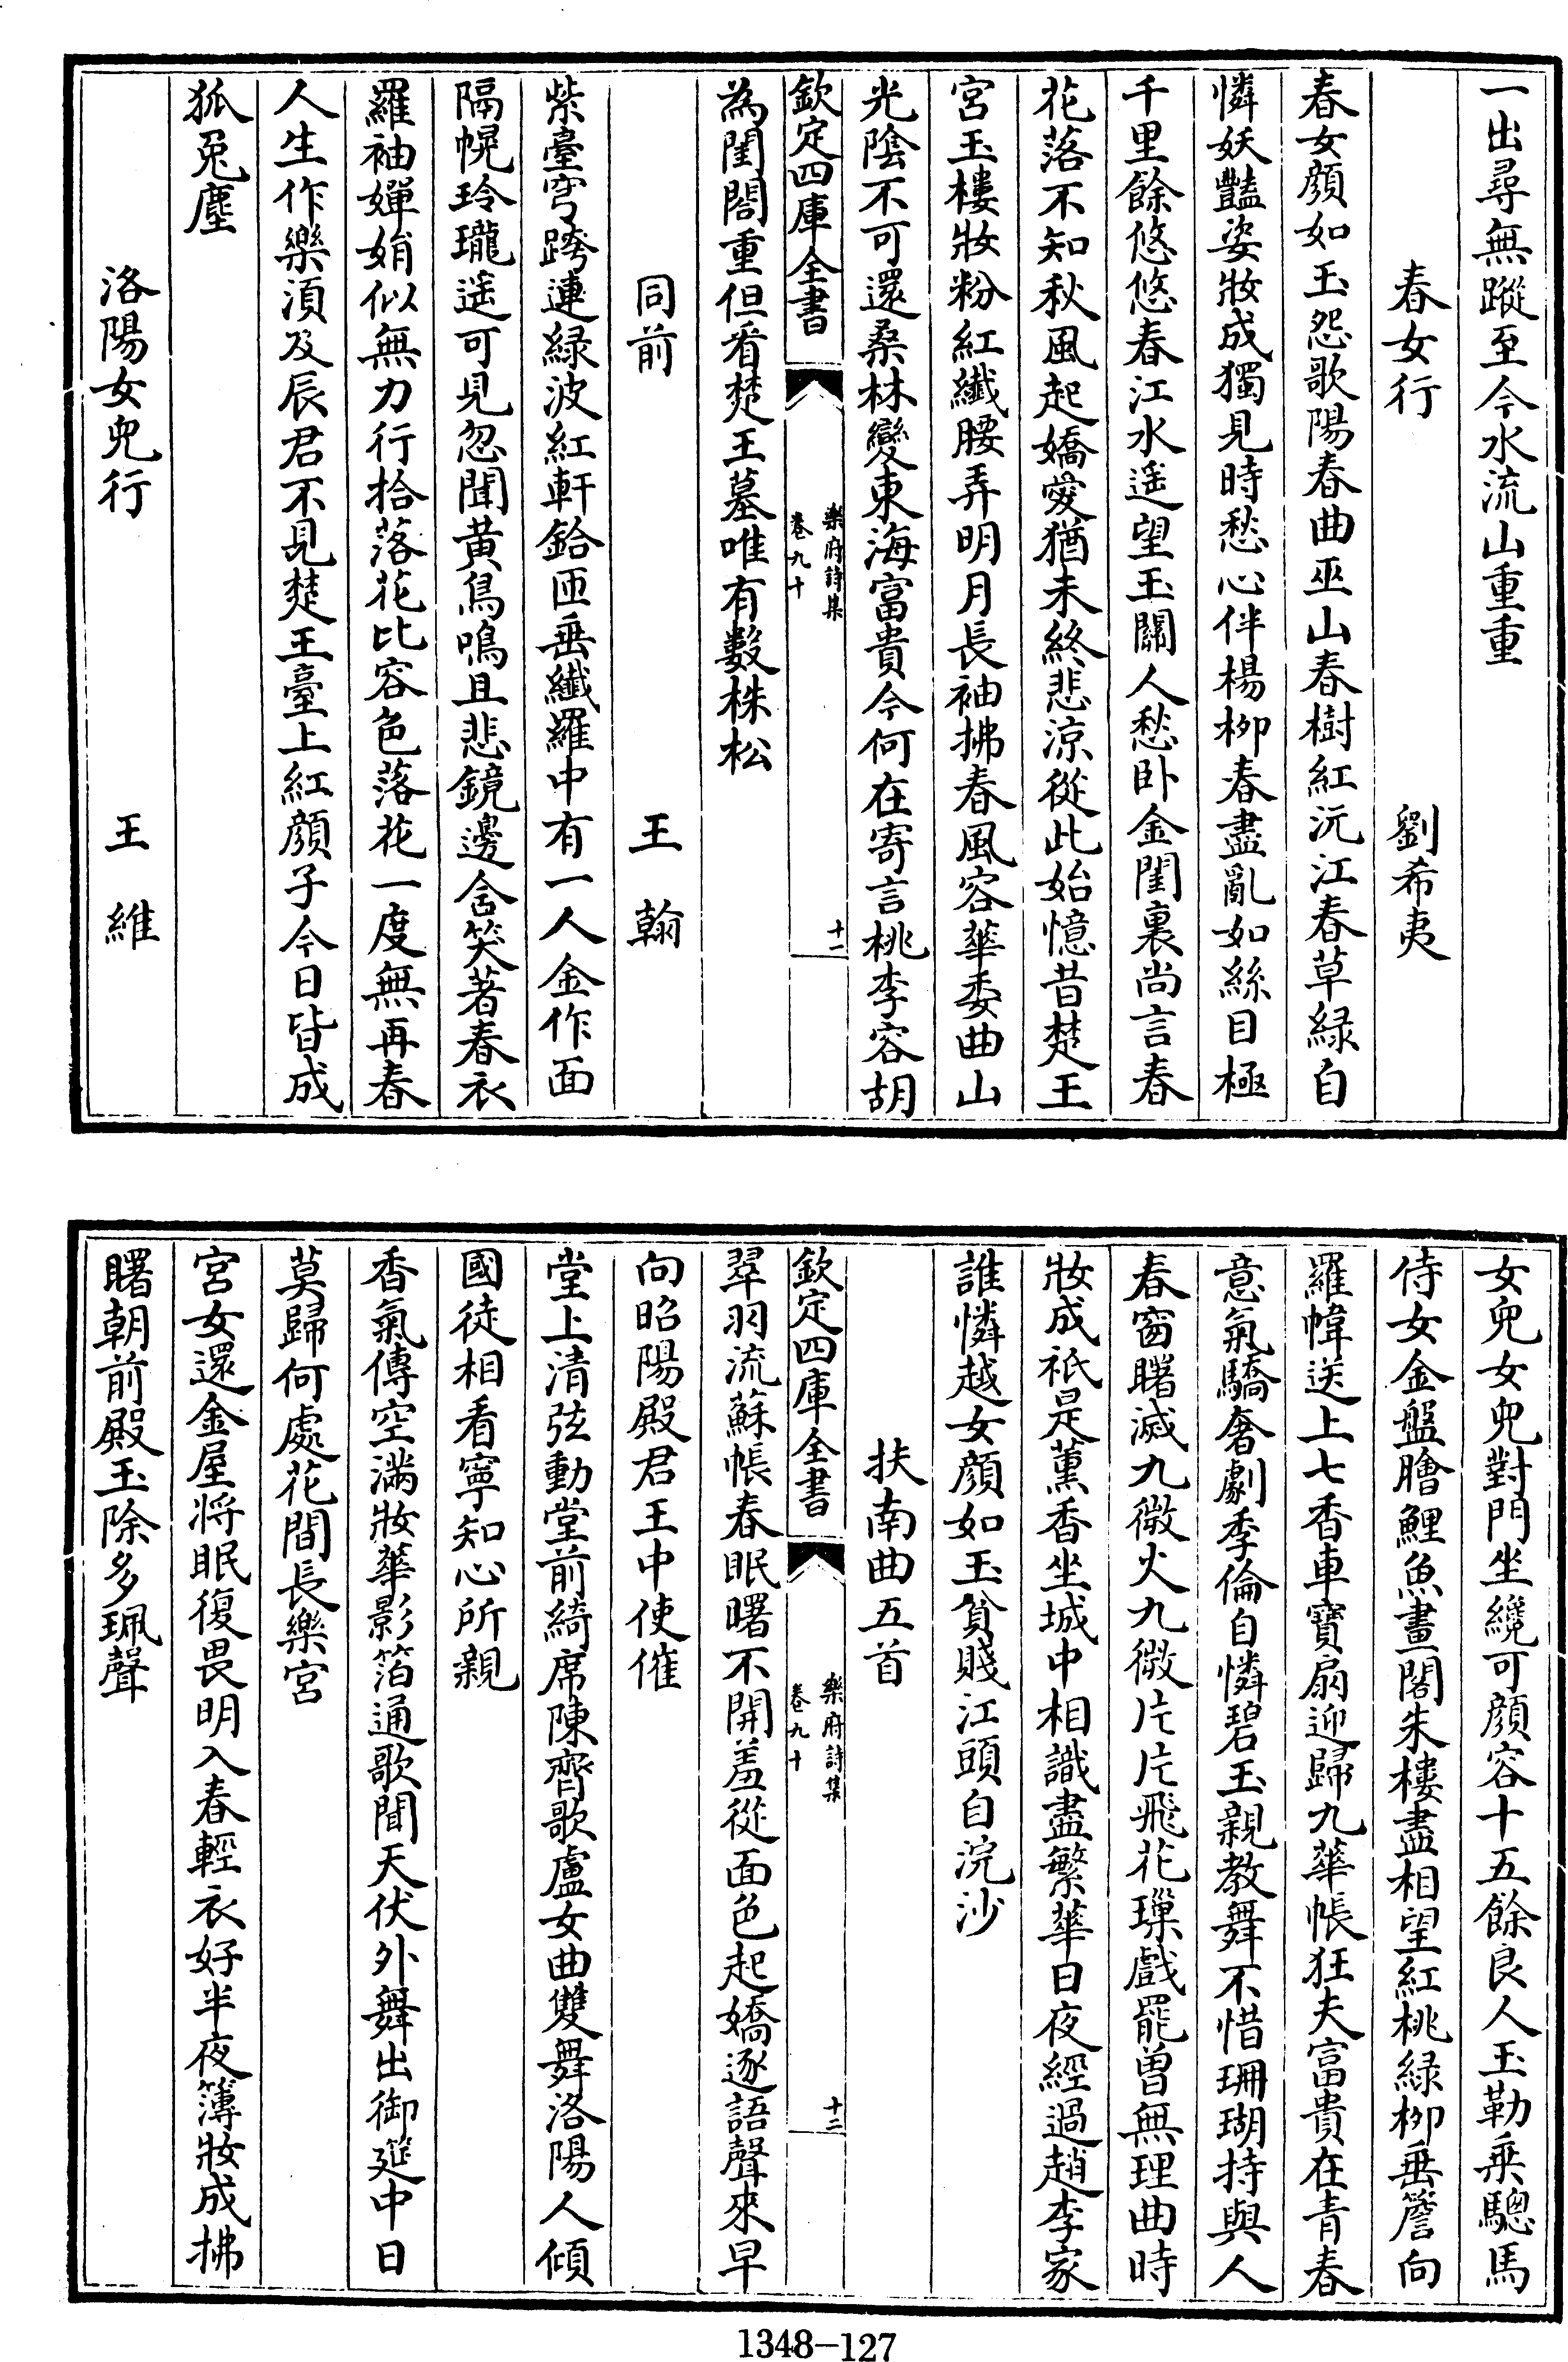 一出尋無蹤至今水流山重重
春女行 劉希夷
春女顔如玉怨歌陽春曲巫山春樹紅沅江春草緑自
憐妖豔姿妝成獨見時愁心伴楊栁春盡亂如絲目極
千里餘悠悠春江水遥望玉關人愁卧金閨裏尚言春
花落不知秋風起嬌愛猶未終悲涼從此始憶昔楚王
宫玉樓妝粉紅纎腰弄明月長袖拂春風容華委曲山
光陰不可還桑林變東海富貴今何在寄言桃李容胡
欽定四庫全書 樂府詩集 卷九十 十一
為閨閤重但看楚王墓唯有數株松
同前 王翰
紫臺穹跨連緑波紅軒鉿匝垂纎羅中有一人金作面
隔幌玲瓏遥可見忽聞黄鳥鳴且悲鏡邊含笑著春衣
羅袖嬋娟似無力行拾落花比容色落花一度無再春
人生作樂須及辰君不見楚王臺上紅顔子今日皆成
狐兔塵
洛陽女兒行 王維
女兒女兒對門坐纔可顔容十五餘良人玉勒乗驄馬
侍女金盤膾鯉魚畫閣朱樓盡相望紅桃緑栁垂簷向
羅幃送上七香車寳扇迎歸九華帳狂夫富貴在青春
意氣驕奢劇季倫自憐碧玉親教舞不惜珊瑚持與人
春窗曙滅九微火九微片片飛花璅戲罷曽無理曲時
妝成祗是薫香坐城中相識盡繁華日夜經過趙李家
誰憐越女顔如玉貧賤江頭自浣沙
扶南曲五首
欽定四庫全書 樂府詩集 卷九十 十二
翠羽流蘇帳春眠曙不開羞從面色起嬌逐語聲來早
向昭陽殿君王中使催
堂上清弦動堂前綺席陳齊歌盧女曲雙舞洛陽人傾
國徒相看寧知心所親
香氣傳空滿妝華影箔通歌聞天仗外舞出御筵中日
莫歸何處花間長樂宫
宫女還金屋將眠復畏明入春輕衣好半夜簿妝成拂
曙朝前殿玉除多珮聲
1348-127